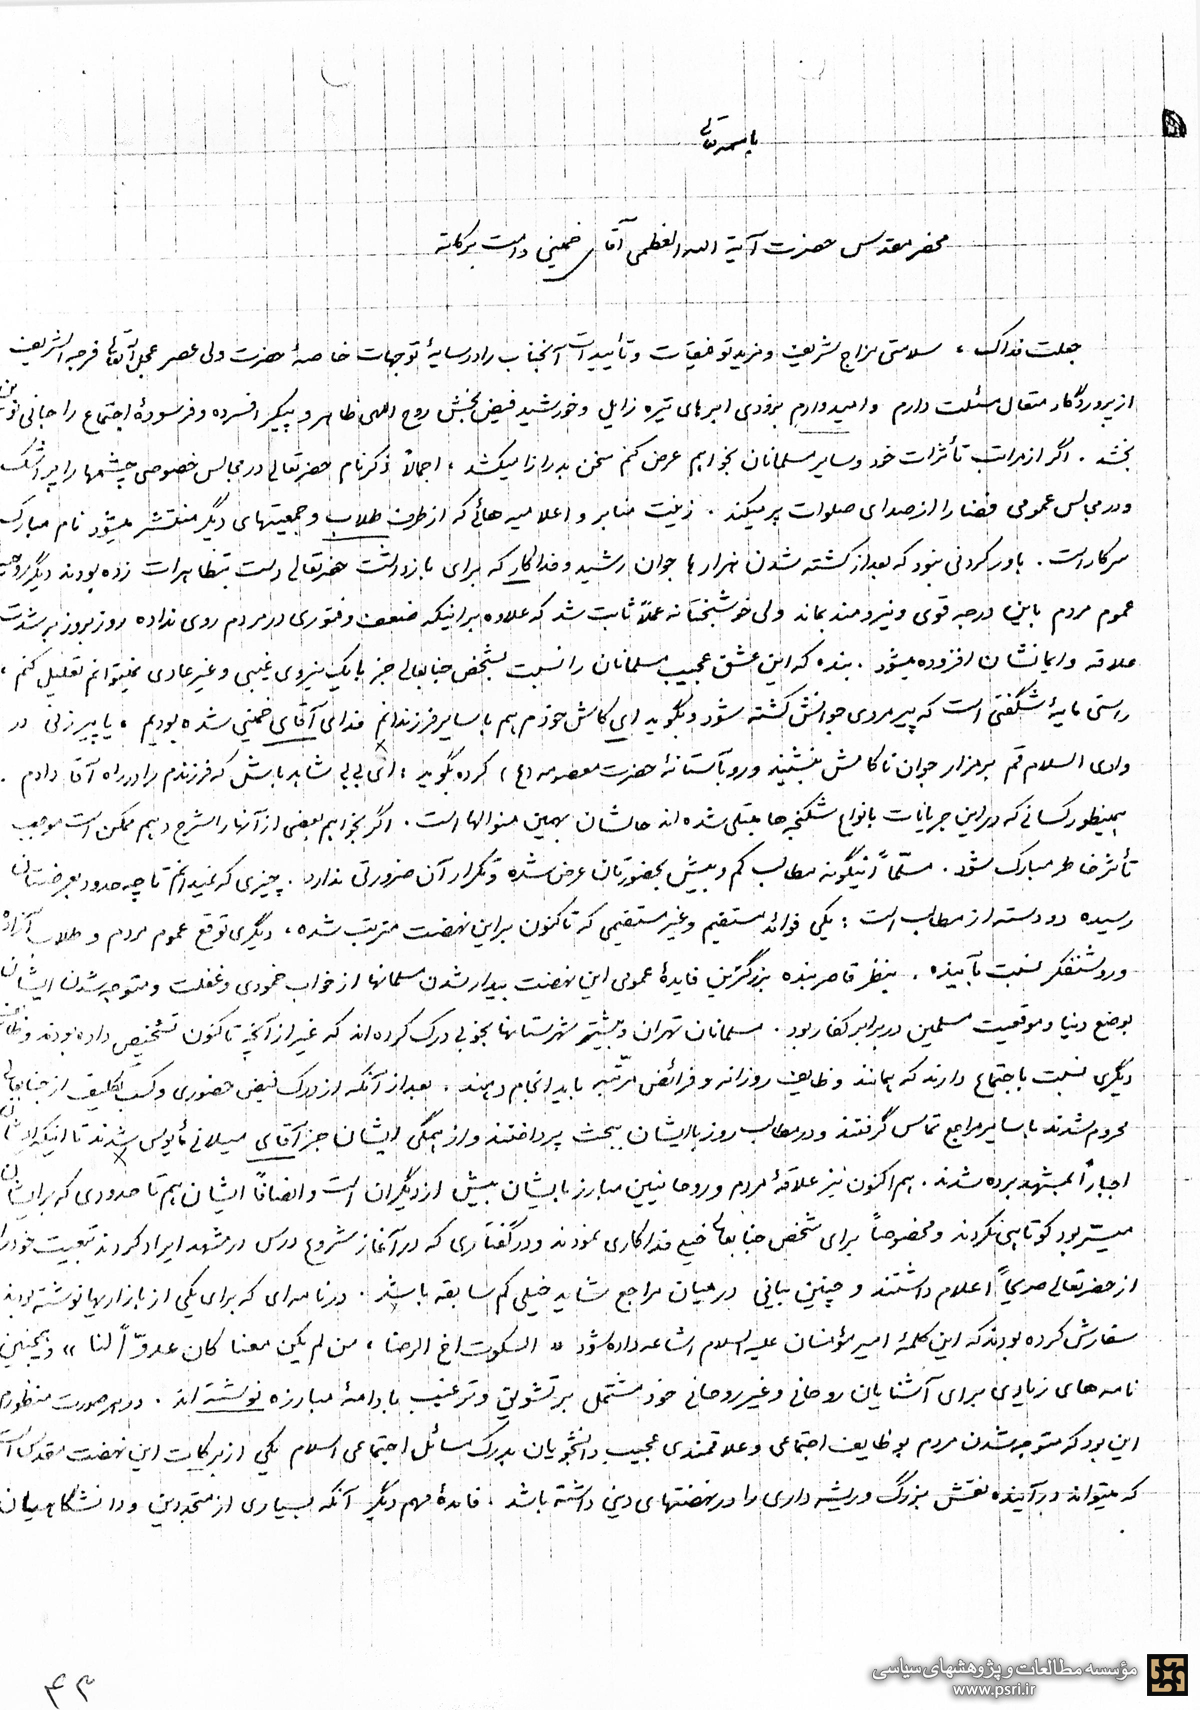 باسمه تعالی
محضر مقدس حضرت آیة الله العظمی آقای خمینی دامت برکاته
جعلت فداک ، سلامتی مزاج شریف و مزید توفیقات و تأییدات آنجناب را در سایهٔ توجهات خاصهٔ حضرت ولی عصر عجل الله تعالی فرجه الشریف
از پروردگار متعال مسئلت دارم و امیدوارم بزودی ابرهای تیره زایل و خورشید فیض بخش روح اللهی ظاهر و پیکر افسرده و فرسودهٔ اجتماع را جانی نوین
بخشد . اگر از مراتب تأثرات خود و سایر مسلمانان بخواهم عرض کنم سخن بدرازا میکشد ، اجمالاً ذکر نام حضرتعالی در مجالس خصوصی چشمها را پر اشک
و در مجالس عمومی فضا را از صدای صلوات پر میکند . زینت منابر و اعلامیه هائی که از طرف طلاب و جمعیتهای دیگر منتشر میشود نام مبارک
سرکار است . باور کردنی نبود که بعد از کشته شدن هزارها جوان رشید و فداکار که برای بازداشت حضرتعالی دست بتظاهرات زده بودند دیگر روحیه
عموم مردم باین درجه قوی و نیرومند بماند ولی خوشبختانه عملاً ثابت شد که علاوه بر اینکه ضعف و فتوری در مردم روی نداده روز بروز بر شدت
علاقه و ایمانشان افزوده میشود . بنده که این عشق عجیب مسلمانان را نسبت بشخص جنابعالی جز بایک نیروی غیبی و غیر عادی نمیتوانم تعلیل کنم ،
راستی مایهٔ شگفتی است که پیرمردی جوانش کشته شود و بگوید ای کاش خودم هم با سایر فرزندانم فدای آقای خمینی شده بودیم ، یا پیرزنی در
وادی السلام قم بر مزار جوان ناکامش بنشیند و رو بآستانهٔ حضرت معصومه (ع) کرده بگوید : ای بی بی شاهد باش که فرزندم را در راه آقا دادم .
بهمینطور کسانی که در این جریانات بانواع شکنجه ها مبتلی شده اند حالشان بهمین منوالها است . اگر بخواهم بعضی از آنها را شرح دهم ممکن است موجب
تأثر خاطر مبارک شود . مسلّماً اینگونه مطالب کم و بیش بحضورتان عرض شده و تکرار آن ضرورتی ندارد . چیزی که نمیدانم تا چه حدود بعرضتان
رسیده دو دسته از مطالب است : یکی فوائد مستقیم و غیر مستقیمی که تاکنون بر این نهضت مترتب شده ، دیگری توقع عموم مردم و طلاب آزاده
و روشنفکر نسبت بآینده . بنظر قاصر بنده بزرگترین فایدهٔ عمومی این نهضت بیدار شدن مسلمانها از خواب خمودی و غفلت و متوجه شدن ایشان
بوضع دنیا و موقعیت مسلمین در برابر کفار بود . مسلمانان تهران و بیشتر شهرستانها بخوبی درک کرده اند که غیر از آنچه تاکنون تشخیص داده بودند وظائف
دیگری نسبت باجتماع دارند که همانند وظایف روزانه و فرائض مرتّبه باید انجام دهند . بعد از آنکه از درک فیض حضوری و کسب تکلیف از جنابعالی
محروم شدند با سایر مراجع تماس گرفتند و در مطالب روز با ایشان ببحث پرداختند و از همگی ایشان جز آقای میلانی مأیوس شدند تا اینکه ایشان
اجباراً بمشهد برده شدند . هم اکنون نیز علاقهٔ مردم و روحانیین مبارز بایشان بیش از دیگران است و انصافاً ایشان هم تا حدودی که برایشان
میسّر بود کوتاهی نکردند و مخصوصاً برای شخص جنابعالی خیلی فداکاری نمودند و در گفتاری که در آغاز شروع درس در مشهد ایراد کردند تبعیت خود را
از حضرتعالی صریحاً اعلام داشتند و چنین بیانی در میان مراجع شاید خیلی کم سابقه باشد . در نامه ای که برای یکی از بازاریها نوشته بودند
سفارش کرده بودند که این کلمهٔ امیر مؤمنان علیه السلام اشاعه داده شود « السکوت اخ الرضا ، من لم یکن معنا کان عدوّاً لنا » و همچنین
نامه های زیادی برای آشنایان روحانی و غیر روحانی خود مشتمل بر تشویق و ترغیب بادامهٔ مبارزه نوشته اند . در هر صورت منظورم
این بود که متوجه شدن مردم بوظایف اجتماعی و علاقمندی عجیب دانشجویان بدرک مسائل اجتماعی اسلام یکی از برکات این نهضت مقدس است
که میتواند در آینده نقش بزرگ و ریشه داری را در نهضتهای دینی داشته باشد . فایدهٔ مهم دیگر آنکه بسیاری از متجددین و دانشگاهیان
۴۳
مؤسسه مطالعات و پژوهشهای سیاسی
www.psri.ir